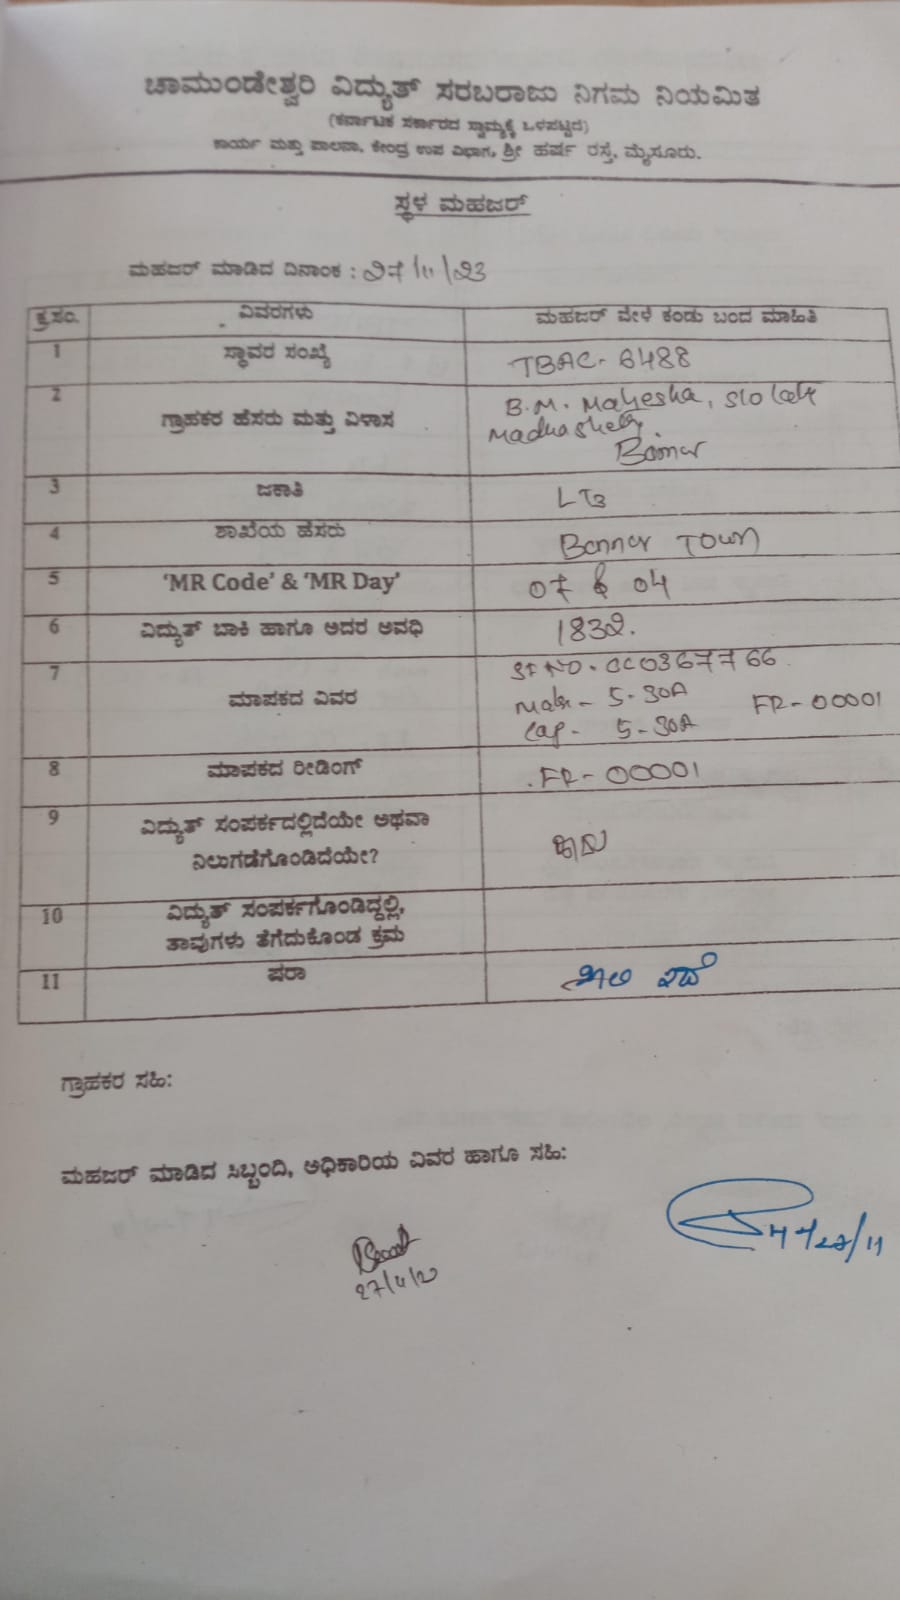 ಚಾಮುಂಡೇಶ್ವರಿ ವಿದ್ಯುತ್ ಸರಬರಾಜು ನಿಗಮ ನಿಯಮಿತ
(ಕರ್ನಾಟಕ ಸರ್ಕಾರದ ಸ್ವಾಮ್ಯಕ್ಕೆ ಒಳಪಟ್ಟಿದೆ)
ಕಾರ್ಯ ಮತ್ತು ಪಾಲನಾ, ಕೇಂದ್ರ ಉಪ ವಿಭಾಗ, ಶ್ರೀ ಹರ್ಷ ರಸ್ತೆ, ಮೈಸೂರು.
ಸ್ಥಳ ಮಹಜರ್
ಮಹಜರ್ ಮಾಡಿದ ದಿನಾಂಕ : 27/11/23
ಕ್ರ.ಸಂ. ವಿವರಗಳು ಮಹಜರ್ ವೇಳೆ ಕಂಡು ಬಂದ ಮಾಹಿತಿ
1 ಸ್ಥಾವರ ಸಂಖ್ಯೆ TBAC- 6488
2 ಗ್ರಾಹಕರ ಹೆಸರು ಮತ್ತು ವಿಳಾಸ B.M. Mahesha, S/o Late
Madhashetty
3 ಜಕಾತಿ LT3
4 ಶಾಖೆಯ ಹೆಸರು Bannur Town
5 'MR Code' & 'MR Day' 07 & 04
6 ವಿದ್ಯುತ್ ಬಾಕಿ ಹಾಗೂ ಅದರ ಅವಧಿ 1832.
7 ಮಾಪಕದ ವಿವರ Sl NO. CC0367766
Make - 5-30A FR-00001
Cap - 5-30A
8 ಮಾಪಕದ ರೀಡಿಂಗ್ FR-00001
9 ವಿದ್ಯುತ್ ಸಂಪರ್ಕದಲ್ಲಿದೆಯೇ ಅಥವಾ
ನಿಲುಗಡೆಗೊಂಡಿದೆಯೇ?
10 ವಿದ್ಯುತ್ ಸಂಪರ್ಕಗೊಂಡಿದ್ದಲ್ಲಿ,
ತಾವುಗಳು ತೆಗೆದುಕೊಂಡ ಕ್ರಮ
11 ಷರಾ
ಗ್ರಾಹಕರ ಸಹಿ:
ಮಹಜರ್ ಮಾಡಿದ ಸಿಬ್ಬಂದಿ, ಅಧಿಕಾರಿಯ ವಿವರ ಹಾಗೂ ಸಹಿ: